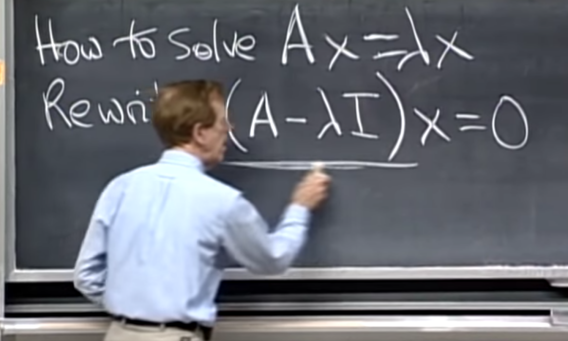 How to solve Ax=λx
Rewri (A-λI)x=0